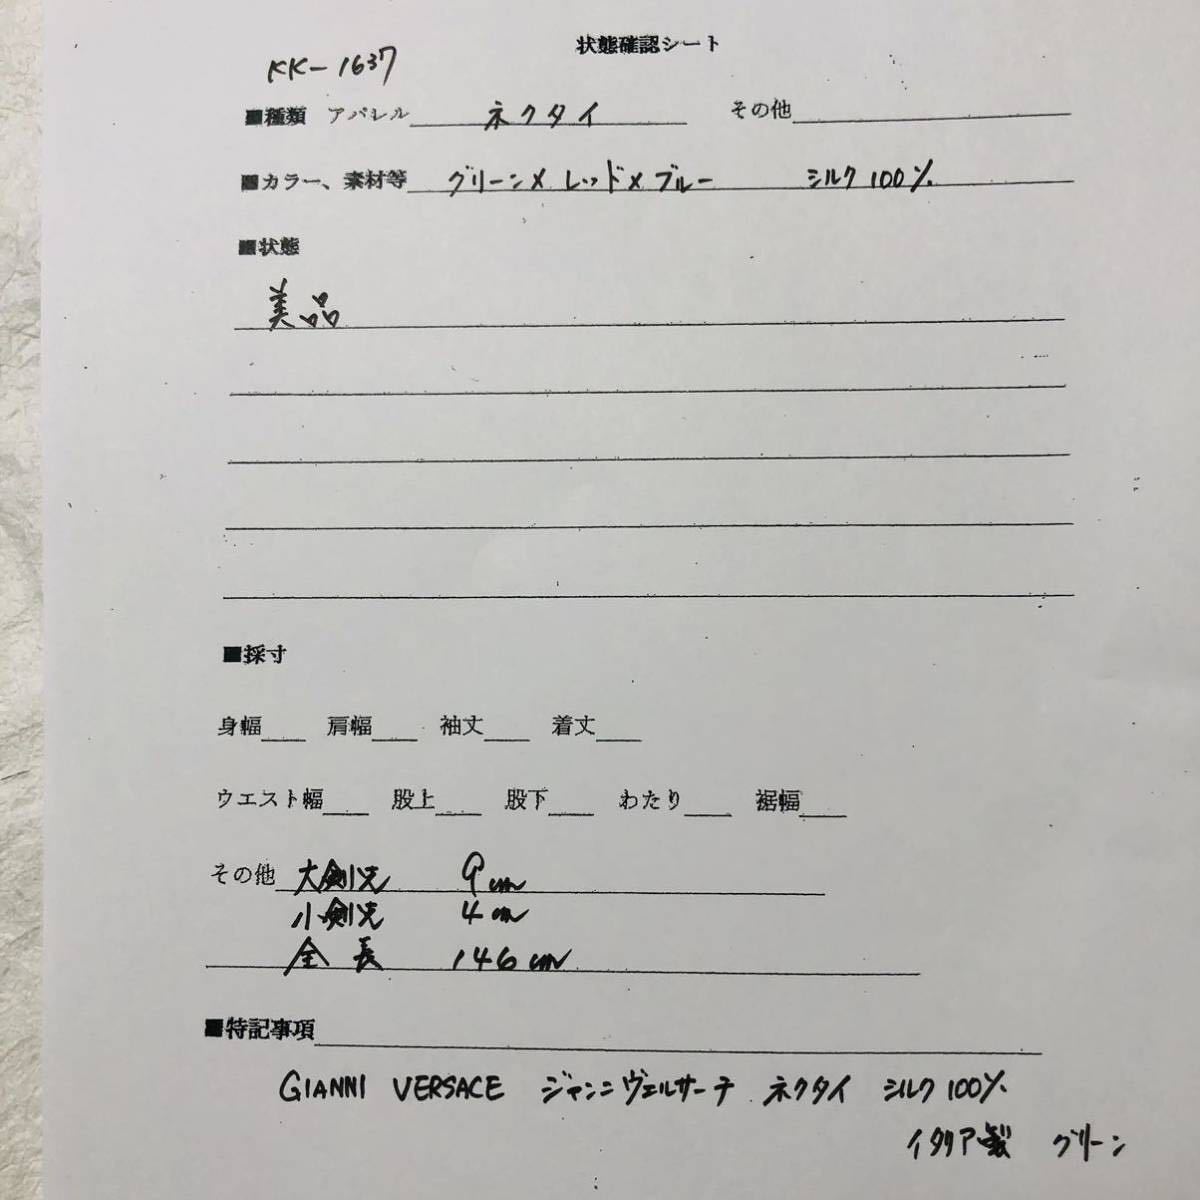 状態確認シート
KK-1637
■種類 アパレル ネクタイ その他
■カラー、素材等 グリーン×レッド×ブルー シルク100%
■状態
美品
■採寸
身幅 肩幅 袖丈 着丈
ウエスト幅 股上 股下 わたり 裾幅
その他 大剣先 9cm
小剣先 4cm
全長 146cm
■特記事項
GIANNI VERSACE ジャンニヴェルサーチ ネクタイ シルク100%
イタリア製 グリーン